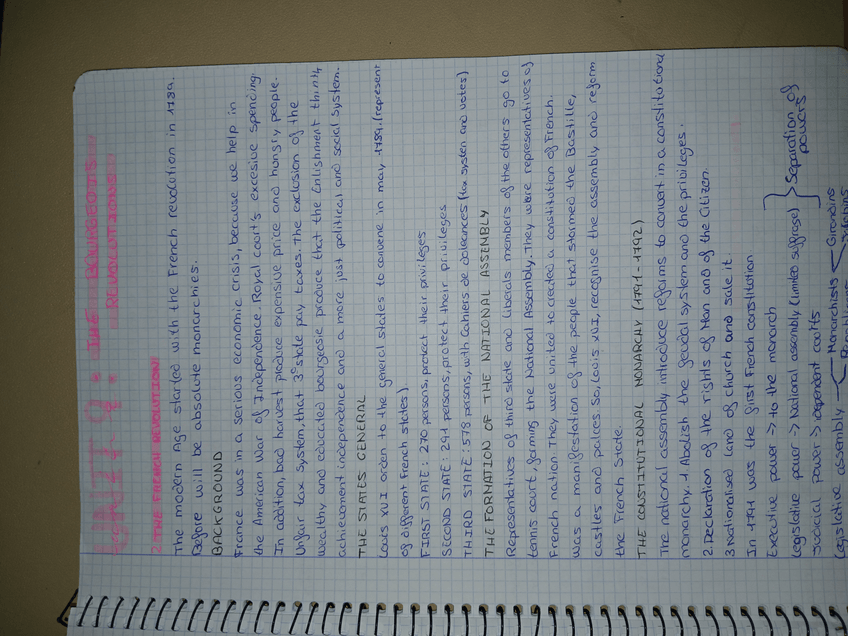 UNIT 2: THE BOURGEOIS
REVOLUTIONS
2. THE FRENCH REVOLUTION
The modern Age started with the French revolution in 1789.
Before will be absolute monarchies.
BACKGROUND
France was in a serious economic crisis, because we help in
the American War of Independence. Royal court's excesive spending.
In addition, bad harvest produce expensive price and hungry people.
Unfair tax system, that 3º state pay taxes. The exclusion of the
wealthy and educated bourgeosie produce that the Enlishment think
achievement independence and a more just political and social system.
THE STATES GENERAL
Louis XVI orden to the general states to convene in may, 1789. (represent
of different French states).
FIRST STATE: 270 persons, protect their privileges
SECOND STATE: 291 persons, protect their privileges
THIRD STATE: 578 persons, with Cahiers de doleances (tax system and votes)
THE FORMATION OF THE NATIONAL ASSEMBLY
Representatives of third state and liberals members of the others go to
tennis court, forming the National Assembly. They were representatives of
French nation. They were united to created a constitution of French.
was a manifestation of the people that stormed the Bastille,
castles and palces so, Louis XVI, recognise the assembly and reform
the French State.
THE CONSTITUTIONAL MONARCHY (1791-1792)
The national assembly introduce reforms to convert in a constitutional
monarchy. 1 Abolish the feudal system and the privileges.
2. Declaration of the rights of Man and of the Citizen.
3 Nationalised land of church and sale it
In 1791 was the first French constitution
Executive power -> to the monarch
Legislative power -> National assembly (limited suffrage)
Judicial power -> independent courts
Separation of
powers
Legislative assembly
Monarchists
Girondins